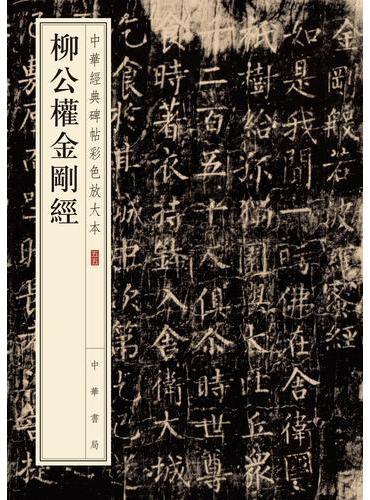 柳公權金剛經
中華經典碑帖彩色放大本
五五
中華書局
金剛般若波羅蜜經
如是我聞一時佛在舍衛國
祇樹給孤獨園與大比丘眾
千二百五十人俱尒時世尊
食時著衣持鉢入舍衛大城
乞食於其城中次第乞